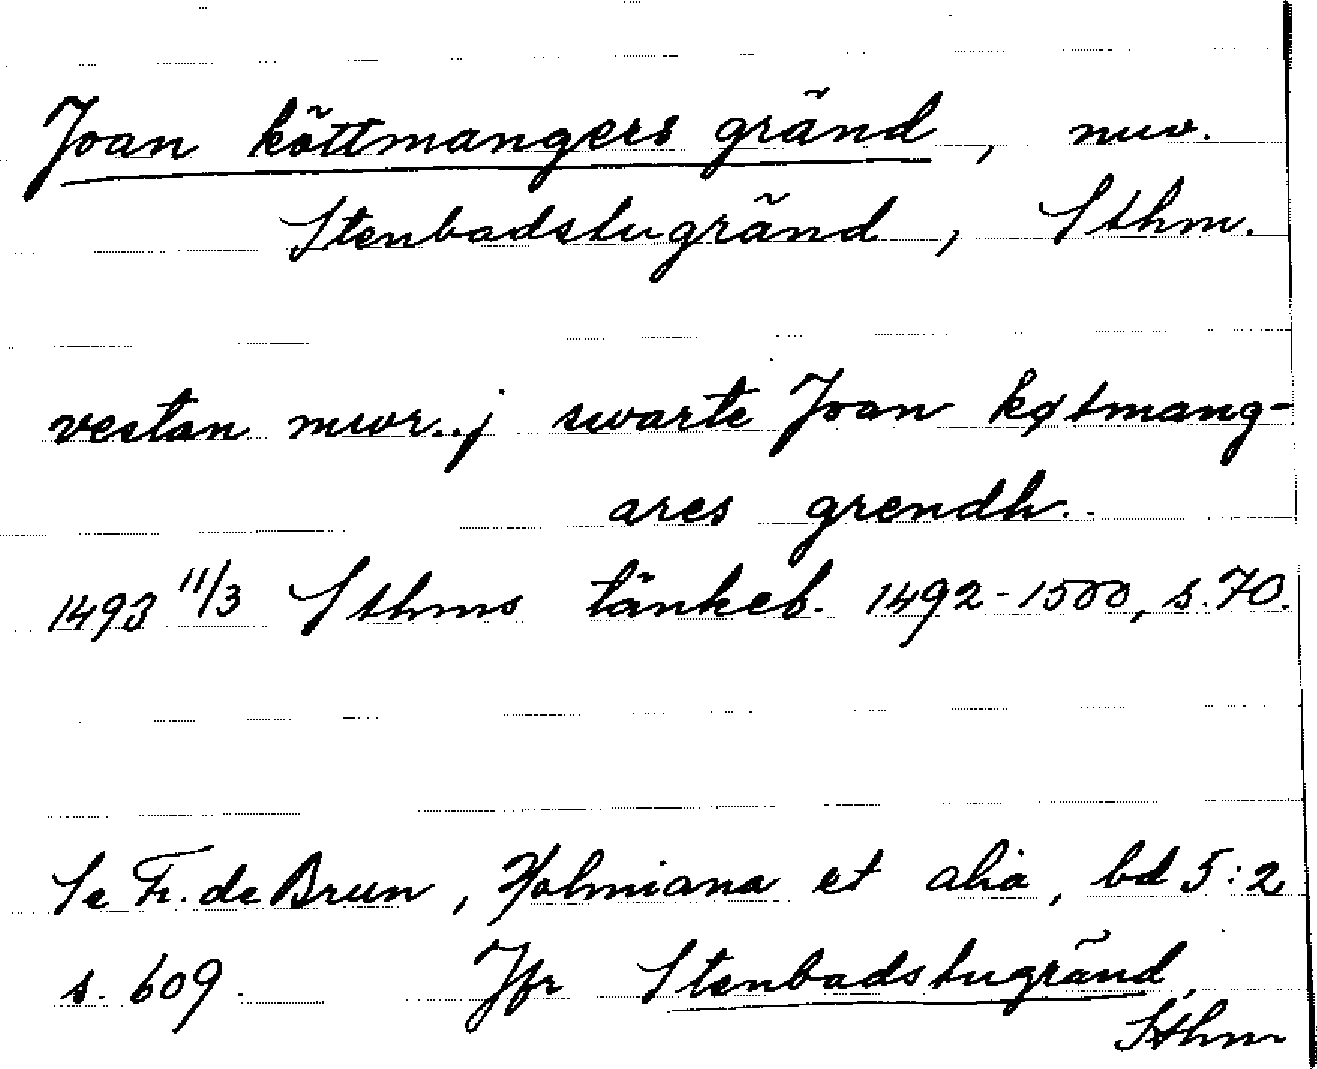 Joan köttmangers gränd, nuv.
Stenbadstugränd, Sthm.
vestan mwr..j swarte Joan køtmang-
ares grendh..
1493 11/3 Sthms tänkeb. 1492-1500, s. 70.
Se Fr. de Brun, Holmiana et alia, bd 5:2
s. 609. Jfr Stenbadstugränd,
Sthm